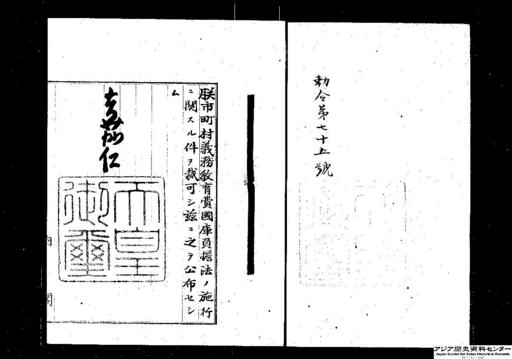 勅令第七十五號
朕市町村義務敎育費國庫負擔法ノ施行
ニ關スル件ヲ裁可シ茲ニ之ヲ公布セシ
ム
嘉仁
天皇
御璽
内閣
アジア歴史資料センター
Japan Center for Asian Historical Records